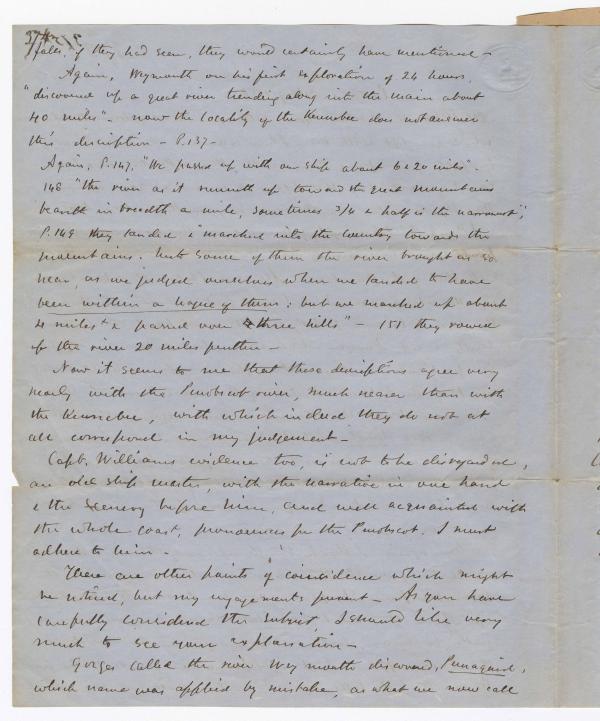 falls, if they had seen, they would certainly have mentioned -
Again, Weymouth on his first exploration of 24 hours,
"discovered up a great river trending along into the main about
40 miles" - now the locality of the Kennebec does not answer
this discription - P. 137 -
Again, P. 147, "We passed up with our ship about 6 & 20 miles" -
148 "the river as it runneth up toward the great mountains
beareth in breadth a mile, sometimes 3/4 & half is the narrowest";
P. 149 they landed & "marched into the country towards the
mountains. unto some of them the river brought us so
near, as we judged ourselves when we landed to have
been within a league of them: but we marched up about
4 miles & passed over three hills" - 151 they rowed
up the river 20 miles further -
Now it seems to me that these discriptions agree very
nearly with the Penobscot river, much nearer than with
the Kennebec, with which indeed they do not at
all correspond in my judgement -
Capt. Williams evidence too, is not to be disregarded,
an old ship master, with the narrative in one hand
& the scenery before him, and well acquainted with
the whole coast, pronounces for the Penobscot. I must
adhere to him -
There are other points of coincidence which might
be noticed, but my engagements prevent - As you have
carefully considered the subject I should like very
much to see your explanation -
Gorges called the river Weymouth discovered, Pemaquid,
which name was applied by mistake, as what we now call